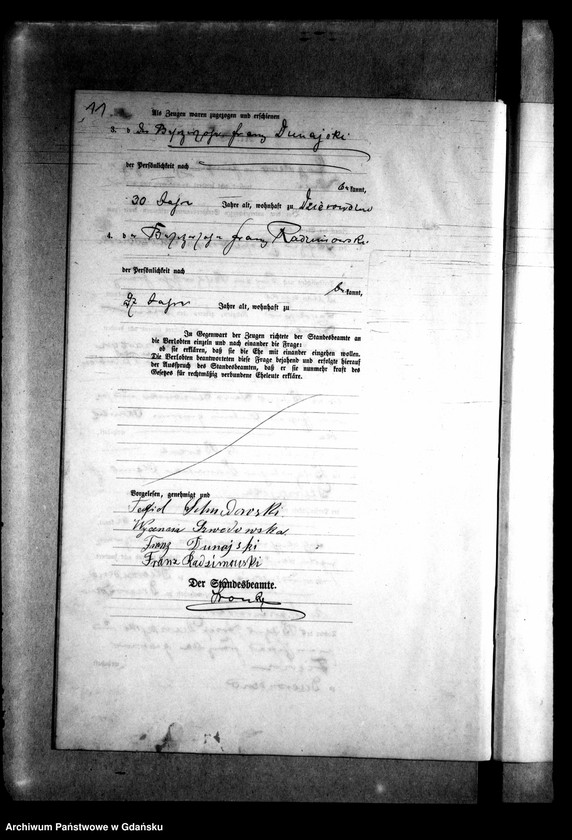 11
Als Zeugen waren zugezogen und erschienen
3. der Franz Dunajski
der Persönlichkeit nach
bekannt,
30 Jahr Jahre alt, wohnhaft zu
4. der Franz Radzimowski
der Persönlichkeit nach
bekannt,
Jahr Jahre alt, wohnhaft zu
In Gegenwart der Zeugen richtete der Standesbeamte an
die Verlobten einzeln und nach einander die Frage:
ob sie erklären, daß sie die Ehe mit einander eingehen wollen.
Die Verlobten beantworteten diese Frage bejahend und erfolgte hierauf
der Ausspruch des Standesbeamten, daß er sie nunmehr kraft des
Gesetzes für rechtmäßig verbundene Eheleute erkläre.
Vorgelesen, genehmigt und
Franz Dunajski
Franz Radzimowski
Der Standesbeamte.
Archiwum Państwowe w Gdańsku